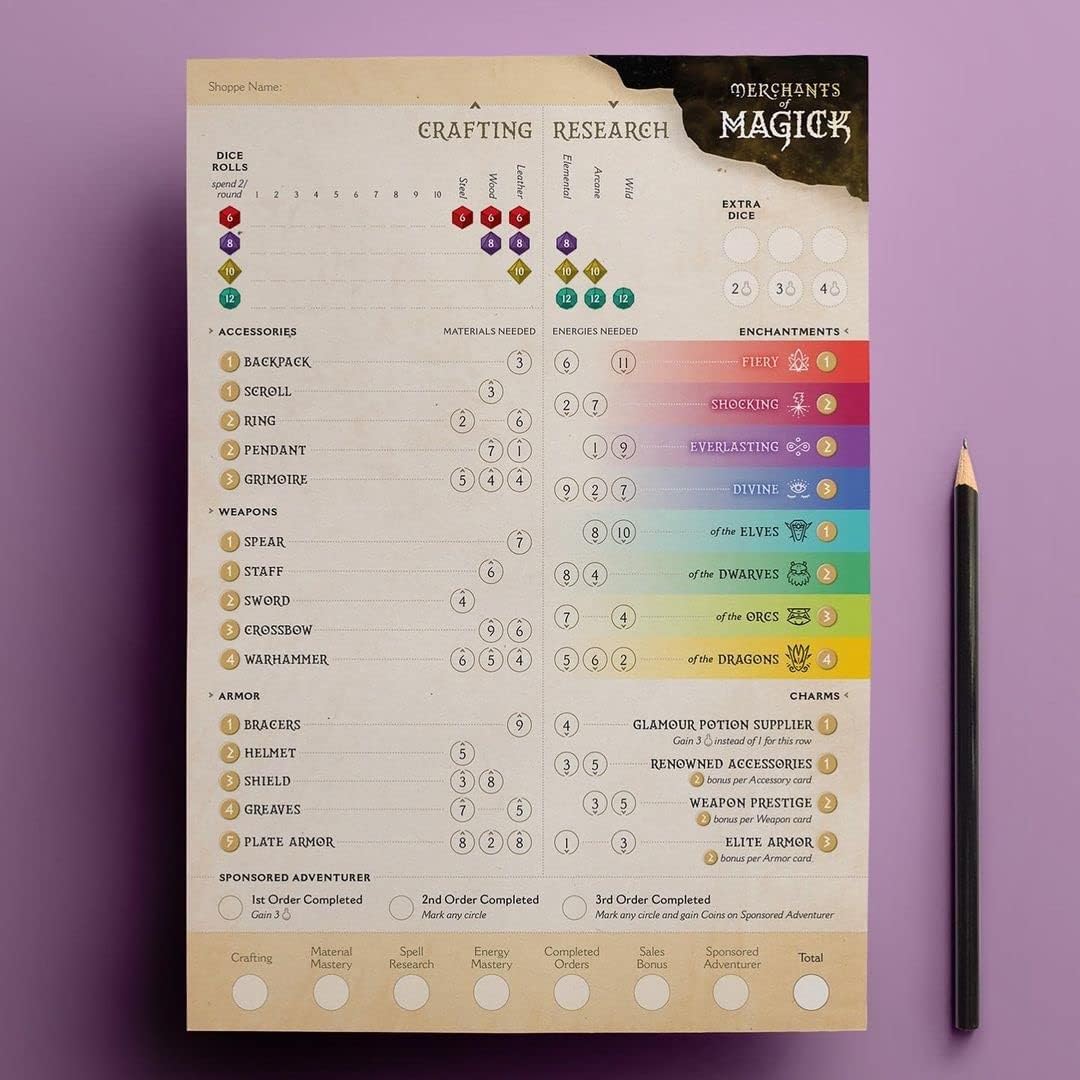 Shoppe Name:
MERCHANTS
of
MAGICK
CRAFTING RESEARCH
DICE
ROLLS
spend 2/
round 1 2 3 4 5 6 7 8 9 10 Steel Wood Leather Elemental Arcane Wild
EXTRA
DICE
6 6 6 6
8 8 8 8
10 10 10 10
12 12 12 12
2 3 4
ACCESSORIES MATERIALS NEEDED ENERGIES NEEDED ENCHANTMENTS
1 BACKPACK 3 6 11 FIERY 1
1 SCROLL 3
2 7 SHOCKING 2
2 RING 2 6
2 PENDANT 7 1 1 9 EVERLASTING 2
3 GRIMOIRE 5 4 4 9 2 7 DIVINE 3
WEAPONS
1 SPEAR 7 8 10 of the ELVES 1
1 STAFF 6 8 4 of the DWARVES 2
2 SWORD 4
7 4 of the ORCS 3
3 CROSSBOW 9 6
4 WARHAMMER 6 5 4 5 6 2 of the DRAGONS 4
ARMOR CHARMS
1 BRACERS 9 4 GLAMOUR POTION SUPPLIER 1
Gain 3 instead of 1 for this row
2 HELMET 5
3 5 RENOWNED ACCESSORIES 1
2 bonus per Accessory card
3 SHIELD 3 8
3 5 WEAPON PRESTIGE 2
4 GREAVES 7 5
2 bonus per Weapon card
5 PLATE ARMOR 8 2 8 1 3 ELITE ARMOR 3
2 bonus per Armor card.
SPONSORED ADVENTURER
1st Order Completed 2nd Order Completed 3rd Order Completed
Gain 3 Mark any circle Mark any circle and gain Coins on Sponsored Adventurer
Crafting Material Mastery Spell Research Energy Mastery Completed Orders Sales Bonus Sponsored Adventurer Total